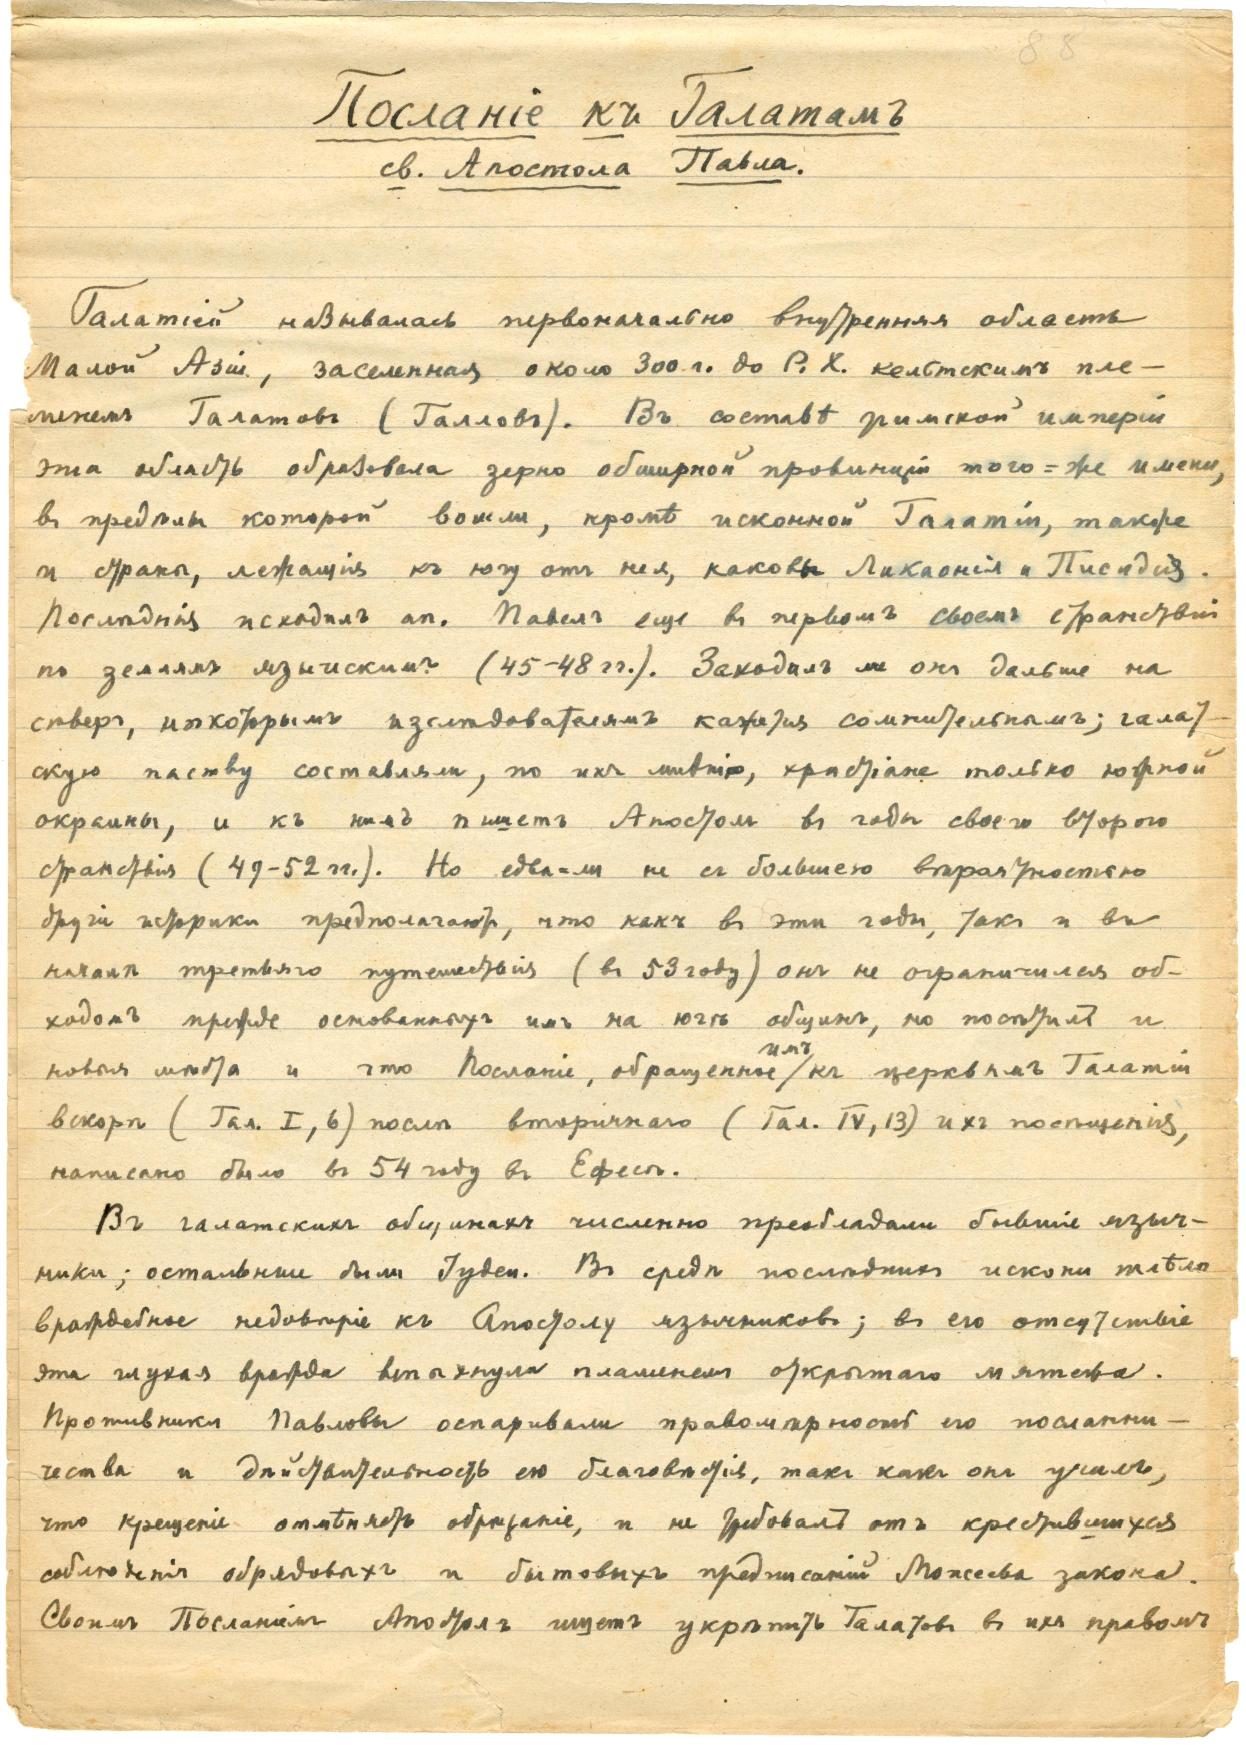 88
Посланіе къ Галатамъ
св. Апостола Павла.
Галатіей называлась первоначально внутренняя область
Малой Азіи, заселенная около 300 г. до Р. Х. кельтскимъ пле-
менемъ Галатовъ (Галловъ). Въ составѣ римской имперіи
эта область образовала зерно обширной провинціи того=же имени,
въ предѣлы которой вошли, кромѣ исконной Галатіи, также
и страны, лежащія къ югу отъ нея, каковы Ликаонія и Писидія.
Послѣднія исходилъ ап. Павелъ еще въ первомъ своемъ странствіи
по землямъ языческимъ (45-48 гг.). Заходилъ ли онъ дальше на
сѣверъ, нѣкоторымъ изслѣдователямъ кажется сомнительнымъ; галат-
скую паству составляли, по ихъ мнѣнію, христіане только южной
окраины, и къ нимъ пишетъ Апостолъ въ годы своего второго
странствія (49-52 гг.). Но едва-ли не съ большею вѣроятностью
другіе историки предполагаютъ, что какъ въ эти годы, такъ и въ
началѣ третьяго путешествія (въ 53 году) онъ не ограничился об-
ходомъ прежде основанныхъ имъ на югѣ общинъ, но посѣтилъ и
новыя мѣста и что Посланіе, обращенное имъ къ церквямъ Галатіи
вскорѣ (Гал. I, 6) послѣ вторичнаго (Гал. IV, 13) ихъ посѣщенія,
написано было въ 54 году въ Ефесѣ.
Въ галатскихъ общинахъ численно преобладали бывшіе языч-
ники; остальные были Іудеи. Въ средѣ послѣднихъ искони тлѣло
враждебное недовѣріе къ Апостолу язычниковъ; въ его отсутствіе
эта глухая вражда вспыхнула пламенемъ открытаго мятежа.
Противники Павловы оспаривали правомѣрность его посланни-
чества и дѣйствительность его благовѣстія, такъ какъ онъ училъ,
что крещеніе отмѣняетъ обрѣзаніе, и не требовалъ отъ крестившихся
соблюденія обрядовыхъ и бытовыхъ предписаній Моисеева закона.
Своимъ Посланіемъ Апостолъ ищетъ укрѣпить Галатовъ въ ихъ правомъ